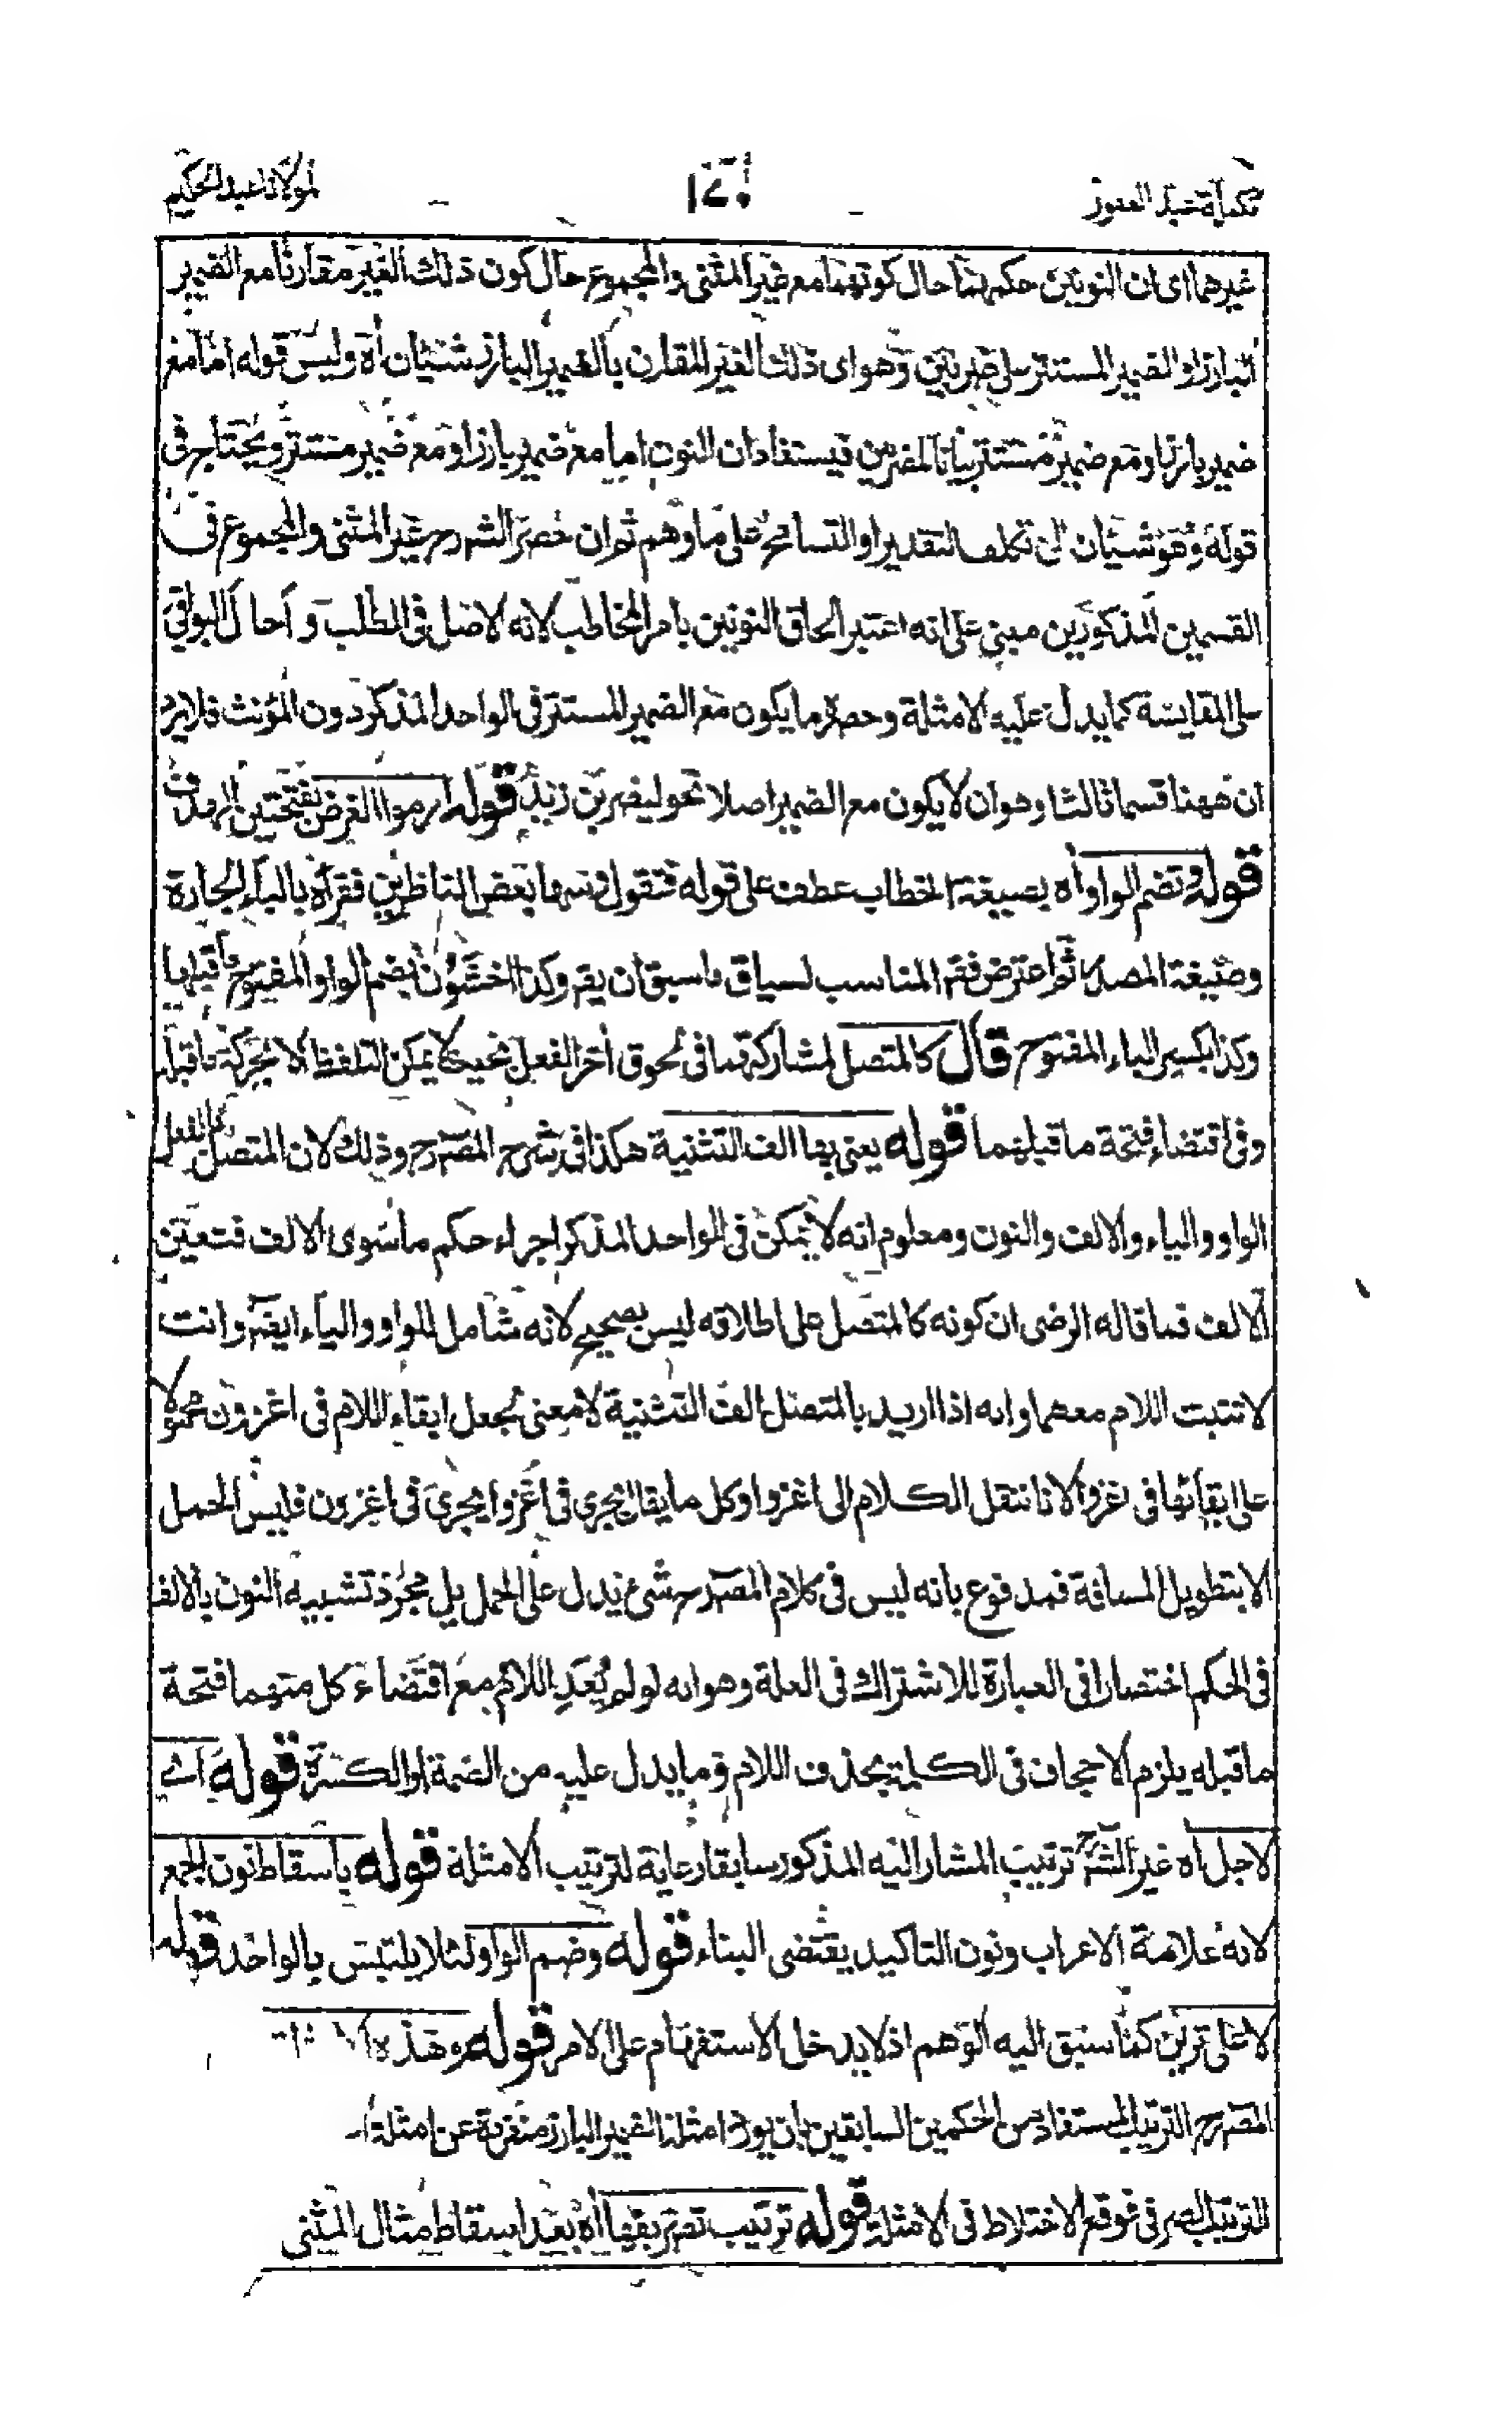 تكملة عبد الغفور ١٤٠ لمولانا عبد الحكيم
غيرهما اى ان النونين حكمهما حال كونهما مع غير المثنى والمجموع حال كون ذلك الغير مقارنا مع الضمير
البارز او الضمير المستتر على ضربين وهو اى ذلك الغير المقارن بالضمير البارز شيئان اه وليس قوله اما مع
ضمير بارز او مع ضمير مستتر بيانا لضربين فيستفاد ان النون اما مع ضمير بارز او مع ضمير مستتر ويحتاج فى
قوله وهو شيئان الى تكلف التقدير او التسامح على ما وهم ثم ان حصر الشرح غير المثنى والمجموع فى
القسمين المذكورين مبنى على انه اعتبر الحاق النونين بامر المخاطب لانه الاصل فى الطلب واحال البواقى
على المقايسة كما يدل عليه الامثلة وحصر ما يكون مع الضمير المستتر فى الواحد المذكر دون المؤنث فلا يرد
ان ههنا قسما ثالثا وهو ان لا يكون مع الضمير اصلا نحو ليضربن زيد قوله ارموا الغرض بفتحتين الهدف
قوله وتضم الواو اه بصيغة الخطاب عطف على قوله فتقول وسها بعض الناظرين فقرأه بالباء الجارة
وصيغة المصدر ثم اعترض فقم المناسب لسياق ما سبق ان يقم وكذا اخشون بضم الواو المفتوح ما قبلها
وكذا بكسر الياء المفتوح قال كالمتصل لمشاركتهما فى لحوق اخر الفعل بحيث لا يمكن التلفظ الا بحركة ما قبله
وفى اقتضاء فتحة ما قبلهما قوله يعنى بها الف التثنية هكذا فى شرح المصرح وذلك لان المتصل بالفعل
الواو والياء والالف والنون ومعلوم انه لا يمكن فى الواحد المذكر اجراء حكم ما سوى الالف فتعين
الالف فما قاله الرضى ان كونه كالمتصل على اطلاقه ليس بصحيح لانه شامل للواو والياء ايضم وانت
لا تثبت اللام معهما وانه اذا اريد بالمتصل الف التثنية لا معنى لجعل ابقاء اللام فى اغزون محمولا
على ابقائها فى اغزوا لانا ننتقل الكلام الى اغزوا وكل ما يقال يجرى فى اغزوا يجرى فى اغزون فليس الحمل
الا بتطويل المسافة فمدفوع بانه ليس فى كلام المصرح شئ يدل على الحمل بل مجرد تشبيه النون بالالف
فى الحكم اختصارا فى العبارة للاشتراك فى العلة وهو انه لو لم يعد اللام مع اقتضاء كل منهما فتحة
ما قبله يلزم الاجحاف فى الكلمة بحذف اللام وما يدل عليه من الضمة او الكسرة قوله اى
لاجل اه غير الشرح ترتيب المشار اليه المذكور سابقا رعاية لترتيب الامثلة قوله باسقاط نون الجمع
لانه علامة الاعراب ونون التاكيد يقتضى البناء قوله وضم الواو لئلا يلتبس بالواحد قوله
لا على ترين كما سبق اليه الوهم اذ لا يدخل الاستفهام على الامر قوله وهذه
المصرح الترتيب المستفاد من الحكمين السابقين بان يورد امثلة الضمير البارز منفردة عن امثلة
الترتيب الصرفى فوقع الاختلاط فى الامثلة قوله ترتيب تصريفها اه بعد اسقاط مثال المثنى